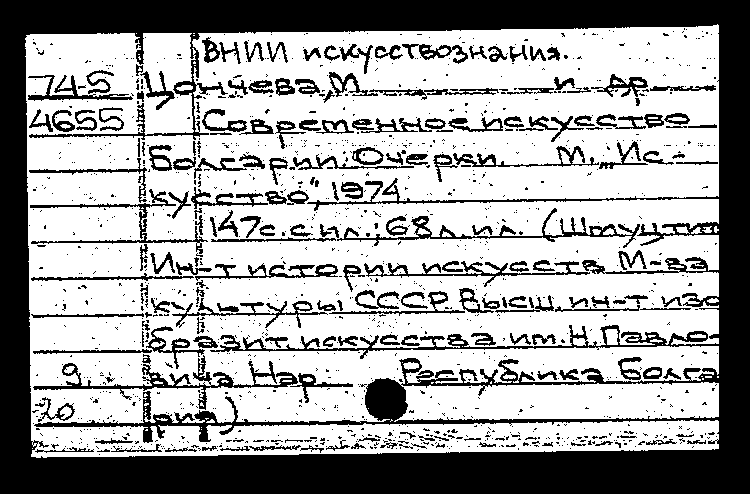 ВНИИ искусствознания.
74-5 Цончева, М. и др
4655 Современное искусство
Болгарии. Очерки. М., „Ис-
кусство", 1974.
147с. с ил.; 68л. ил. (Шмуцтит
Ин-т истории искусств М-ва
культуры СССР. Высш. ин-т изо
бразит. искусства им. Н. Павло-
9. вича Нар. Республика Болга
20 рия).